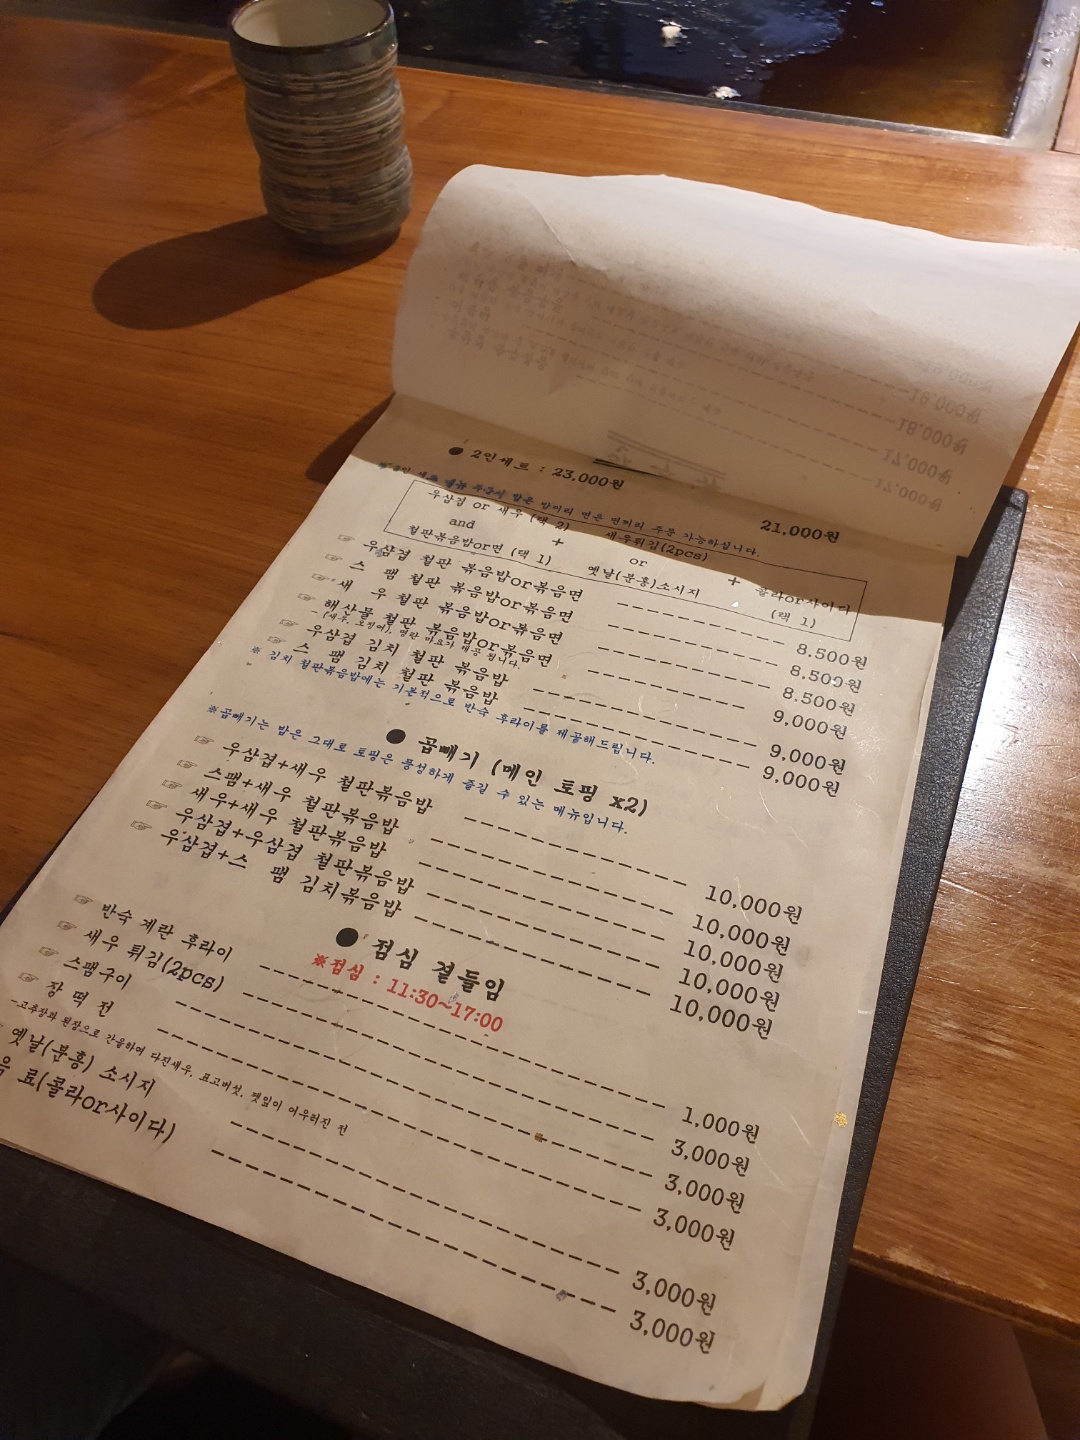 ● 2인세트 : 23,000원
21,000원
우삼겹 or 새우 (택 2)
and
철판볶음밥or면 (택 1)
+
새우튀김(2pcs)
or
옛날(분홍)소시지
+
콜라or사이다
(택 1)
☞ 우삼겹 철판 볶음밥or볶음면 8.500원
☞ 스 팸 철판 볶음밥or볶음면 8.500원
☞ 새 우 철판 볶음밥or볶음면 8.500원
☞ 해산물 철판 볶음밥or볶음면 9,000원
- (새우, 오징어). 명란 마요가 제공 됩니다.
☞ 우삼겹 김치 철판 볶음밥 9,000원
☞ 스 팸 김치 철판 볶음밥 9,000원
※ 김치 철판볶음밥에는 기본적으로 반숙 후라이를 제공해드립니다.
● 곱빼기 (메인 토핑 x2)
※곱빼기는 밥은 그대로 토핑은 풍성하게 즐길 수 있는 메뉴입니다.
☞ 우삼겹+새우 철판볶음밥 10,000원
☞ 스팸+새우 철판볶음밥 10,000원
☞ 새우+새우 철판볶음밥 10,000원
☞ 우삼겹+우삼겹 철판볶음밥 10,000원
☞ 우삼겹+스 팸 김치볶음밥 10,000원
● 점심 곁들임
※점심 : 11:30~17:00
☞ 반숙 계란 후라이 1,000원
☞ 새우 튀김(2pcs) 3,000원
☞ 스팸구이 3,000원
☞ 장 떡 전 3,000원
-고추장과 된장으로 간을하여 다진새우, 표고버섯, 깻잎이 어우러진 전
옛날(분홍) 소시지 3,000원
음 료(콜라or사이다) 3,000원